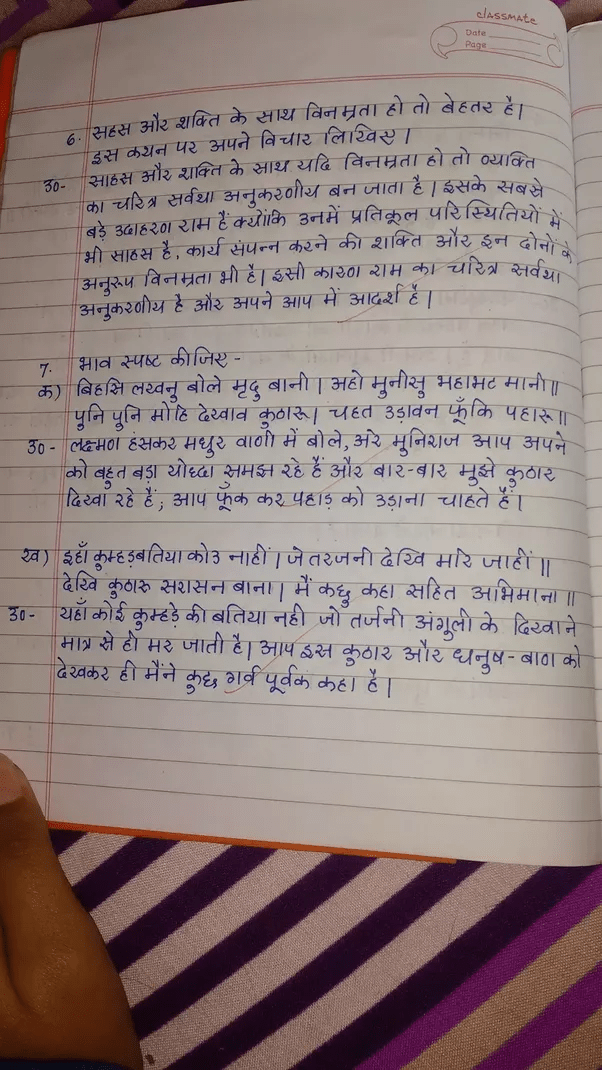 classmate
Date
Page
6. सहस और शक्ति के साथ विनम्रता हो तो बेहतर है।
इस कथन पर अपने विचार लिखिए।
उ०- साहस और शक्ति के साथ यदि विनम्रता हो तो व्यक्ति
का चरित्र सर्वथा अनुकरणीय बन जाता है। इसके सबसे
बड़े उदाहरण राम हैं क्योंकि उनमें प्रतिकूल परिस्थितियों में
भी साहस है, कार्य संपन्न करने की शक्ति और इन दोनों के
अनुरूप विनम्रता भी है। इसी कारण राम का चरित्र सर्वथा
अनुकरणीय है और अपने आप में आदर्श है।
7. भाव स्पष्ट कीजिए -
क) बिहसि लखनु बोले मृदु बानी। अहो मुनीसु महाभट मानी॥
पुनि पुनि मोहि देखाव कुठारू। चहत उड़ावन फूँकि पहारू॥
उ०- लक्ष्मण हंसकर मधुर वाणी में बोले, अरे मुनिराज आप अपने
को बहुत बड़ा योध्दा समझ रहे हैं और बार-बार मुझे कुठार
दिखा रहे हैं; आप फूँक कर पहाड़ को उड़ाना चाहते हैं।
ख) इहाँ कुम्हड़बतिया कोउ नाहीं। जे तरजनी देखि मरि जाहीं॥
देखि कुठारू सरासन बाना। मैं कछु कहा सहित अभिमाना॥
उ०- यहाँ कोई कुम्हड़े की बतिया नही जो तर्जनी अंगुली के दिखाने
मात्र से ही मर जाती है। आप इस कुठार और धनुष-बाण को
देखकर ही मैंने कुछ गर्व पूर्वक कहा है।